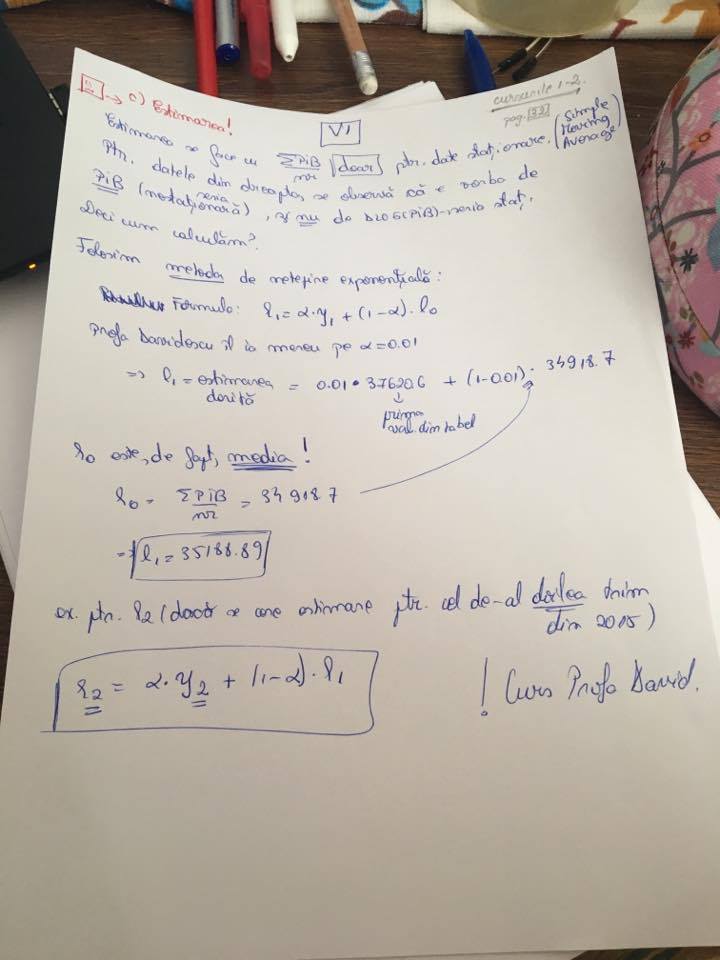 → c) Estimarea!
VI
cursurile 1-2.
pag. 39
Estimarea se face cu ΣPiB/nr doar ptr. date staționare. (Simple Moving Average)
Ptr. datele din dreapta, se observă că e vorba de
PiB (seria nestaționară), și nu de DLOG(PiB)-serie staț.
Deci cum calculăm?
Folosim metoda de netezire exponențială:
Formula: l₁ = α·y₁ + (1-α)·l₀
Profa Davidescu îl ia mereu pe α=0.01
=> l₁ = estimarea dorită = 0.01 · 37620.6 + (1-0.01) · 34918.7
↓
prima
val. din tabel
l₀ este, de fapt, media!
l₀ = ΣPiB/nr = 34918.7
=> l₁ = 35188.89
ex. ptr. l₂ (dacă se cere estimare ptr. cel de-al doilea trim
din 2015)
l₂ = α·y₂ + (1-α)·l₁
! Curs Profa David.